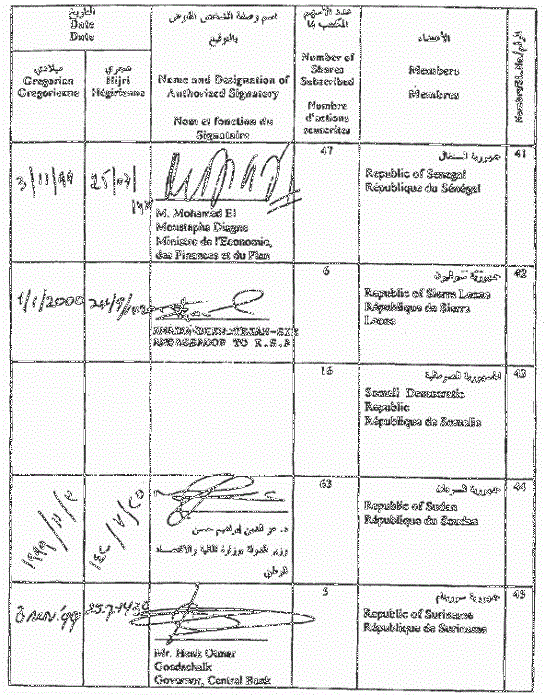 التاريخ
Date
Date
ميلادي
Gregorian
Gregorienne
هجري
Hijri
Hégirienne
اسم وصفة الشخص المفوض
بالتوقيع
Name and Designation of
Authorized Signatory
Nom et fonction du
Signataire
عدد الأسهم
المكتتب بها
Number of
Shares
Subscribed
Nombre
d'actions
souscrites
الأعضاء
Members
Membres
3/11/99
25/07/
M. Mohamed El
Moustapha Diagne
Ministre de l'Economie,
des Finances et du Plan
47
جمهورية السنغال
Republic of Senegal
République du Sénégal
41
1/1/2000
AMBASSADOR TO K.S.A
6
جمهورية سيراليون
Republic of Sierra Leone
République de Sierra
Leone
42
15
الجمهورية الصومالية
Somali Democratic
Republic
République de Somalie
43
د. عز الدين إبراهيم حسن
وزير الدولة بوزارة المالية والاقتصاد
الوطني
63
جمهورية السودان
Republic of Sudan
République du Soudan
44
3 NOV. 99
25.7.1420
Mr. Henk Otmar
Goedschalk
Governor, Central Bank
5
جمهورية سورينام
Republic of Suriname
République de Suriname
45